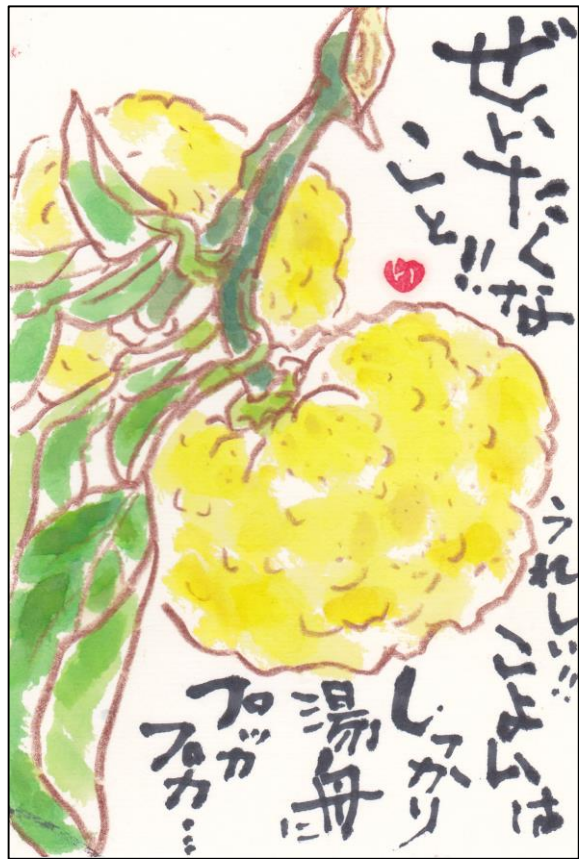 ぜいたくな
こと!!
うれしい!!
こよいは
しっかり
湯舟に
プッカ
プカ…